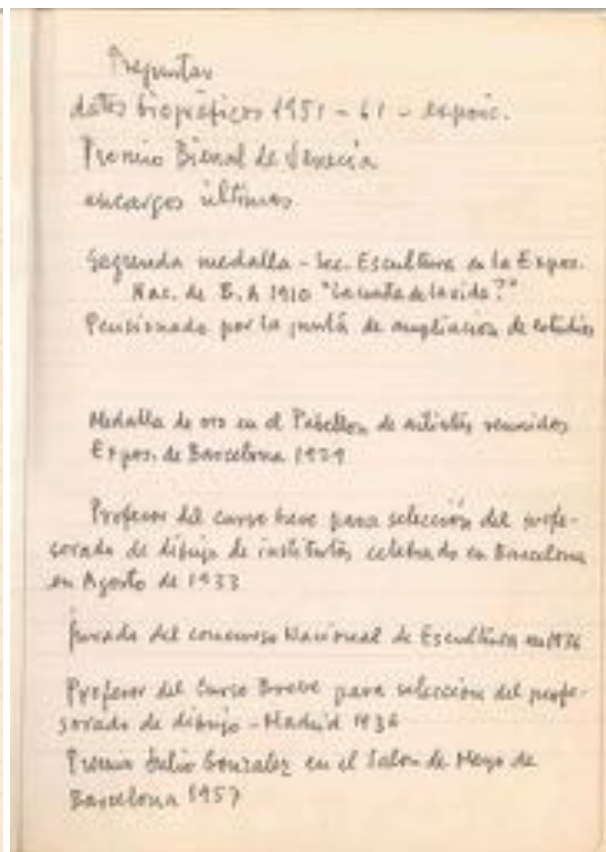 Preguntar
datos biográficos 1951 - 61 - exposic.
Premio Bienal de Venecia
encargos últimos
Segunda medalla - Sec. Escultura en la Expos.
Nac. de B. A 1910 "
Pensionado por la junta de ampliacion de estudios
Medalla de oro en el Pabellon de artistas reunidos
Expos. de Barcelona 1929
Profesor del curso breve para selección del profe-
sorado de dibujo de institutos celebrado en Barcelona
en Agosto de 1933
Jurado del concurso Nacional de Escultura en 1936
Profesor del Curso Breve para selección del profe-
sorado de dibujo - Madrid 1936
Premio Julio Gonzalez en el Salon de Mayo de
Barcelona 1957